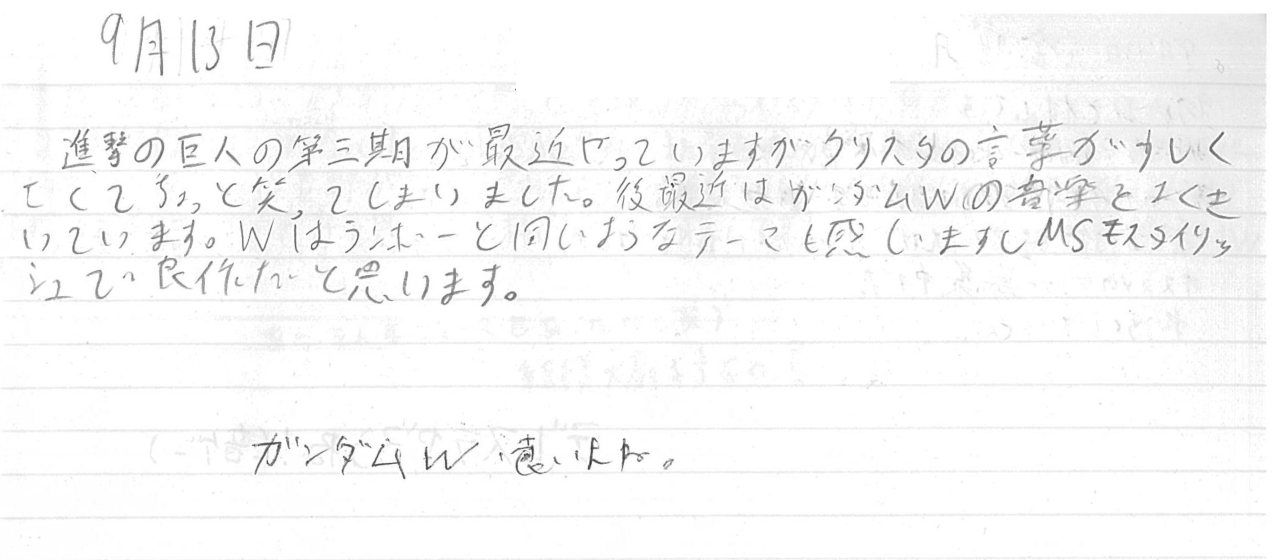 9月13日
進撃の巨人の第三期が最近やっていますがクリスタの言葉が少しく
てちょっと笑ってしまいました。後最近はガンダムWの音楽をよくき
いています。Wはランボーと同じようなテーマも感じますしMSモスタイリッ
シュで良作だと思います。
ガンダムW
よね。